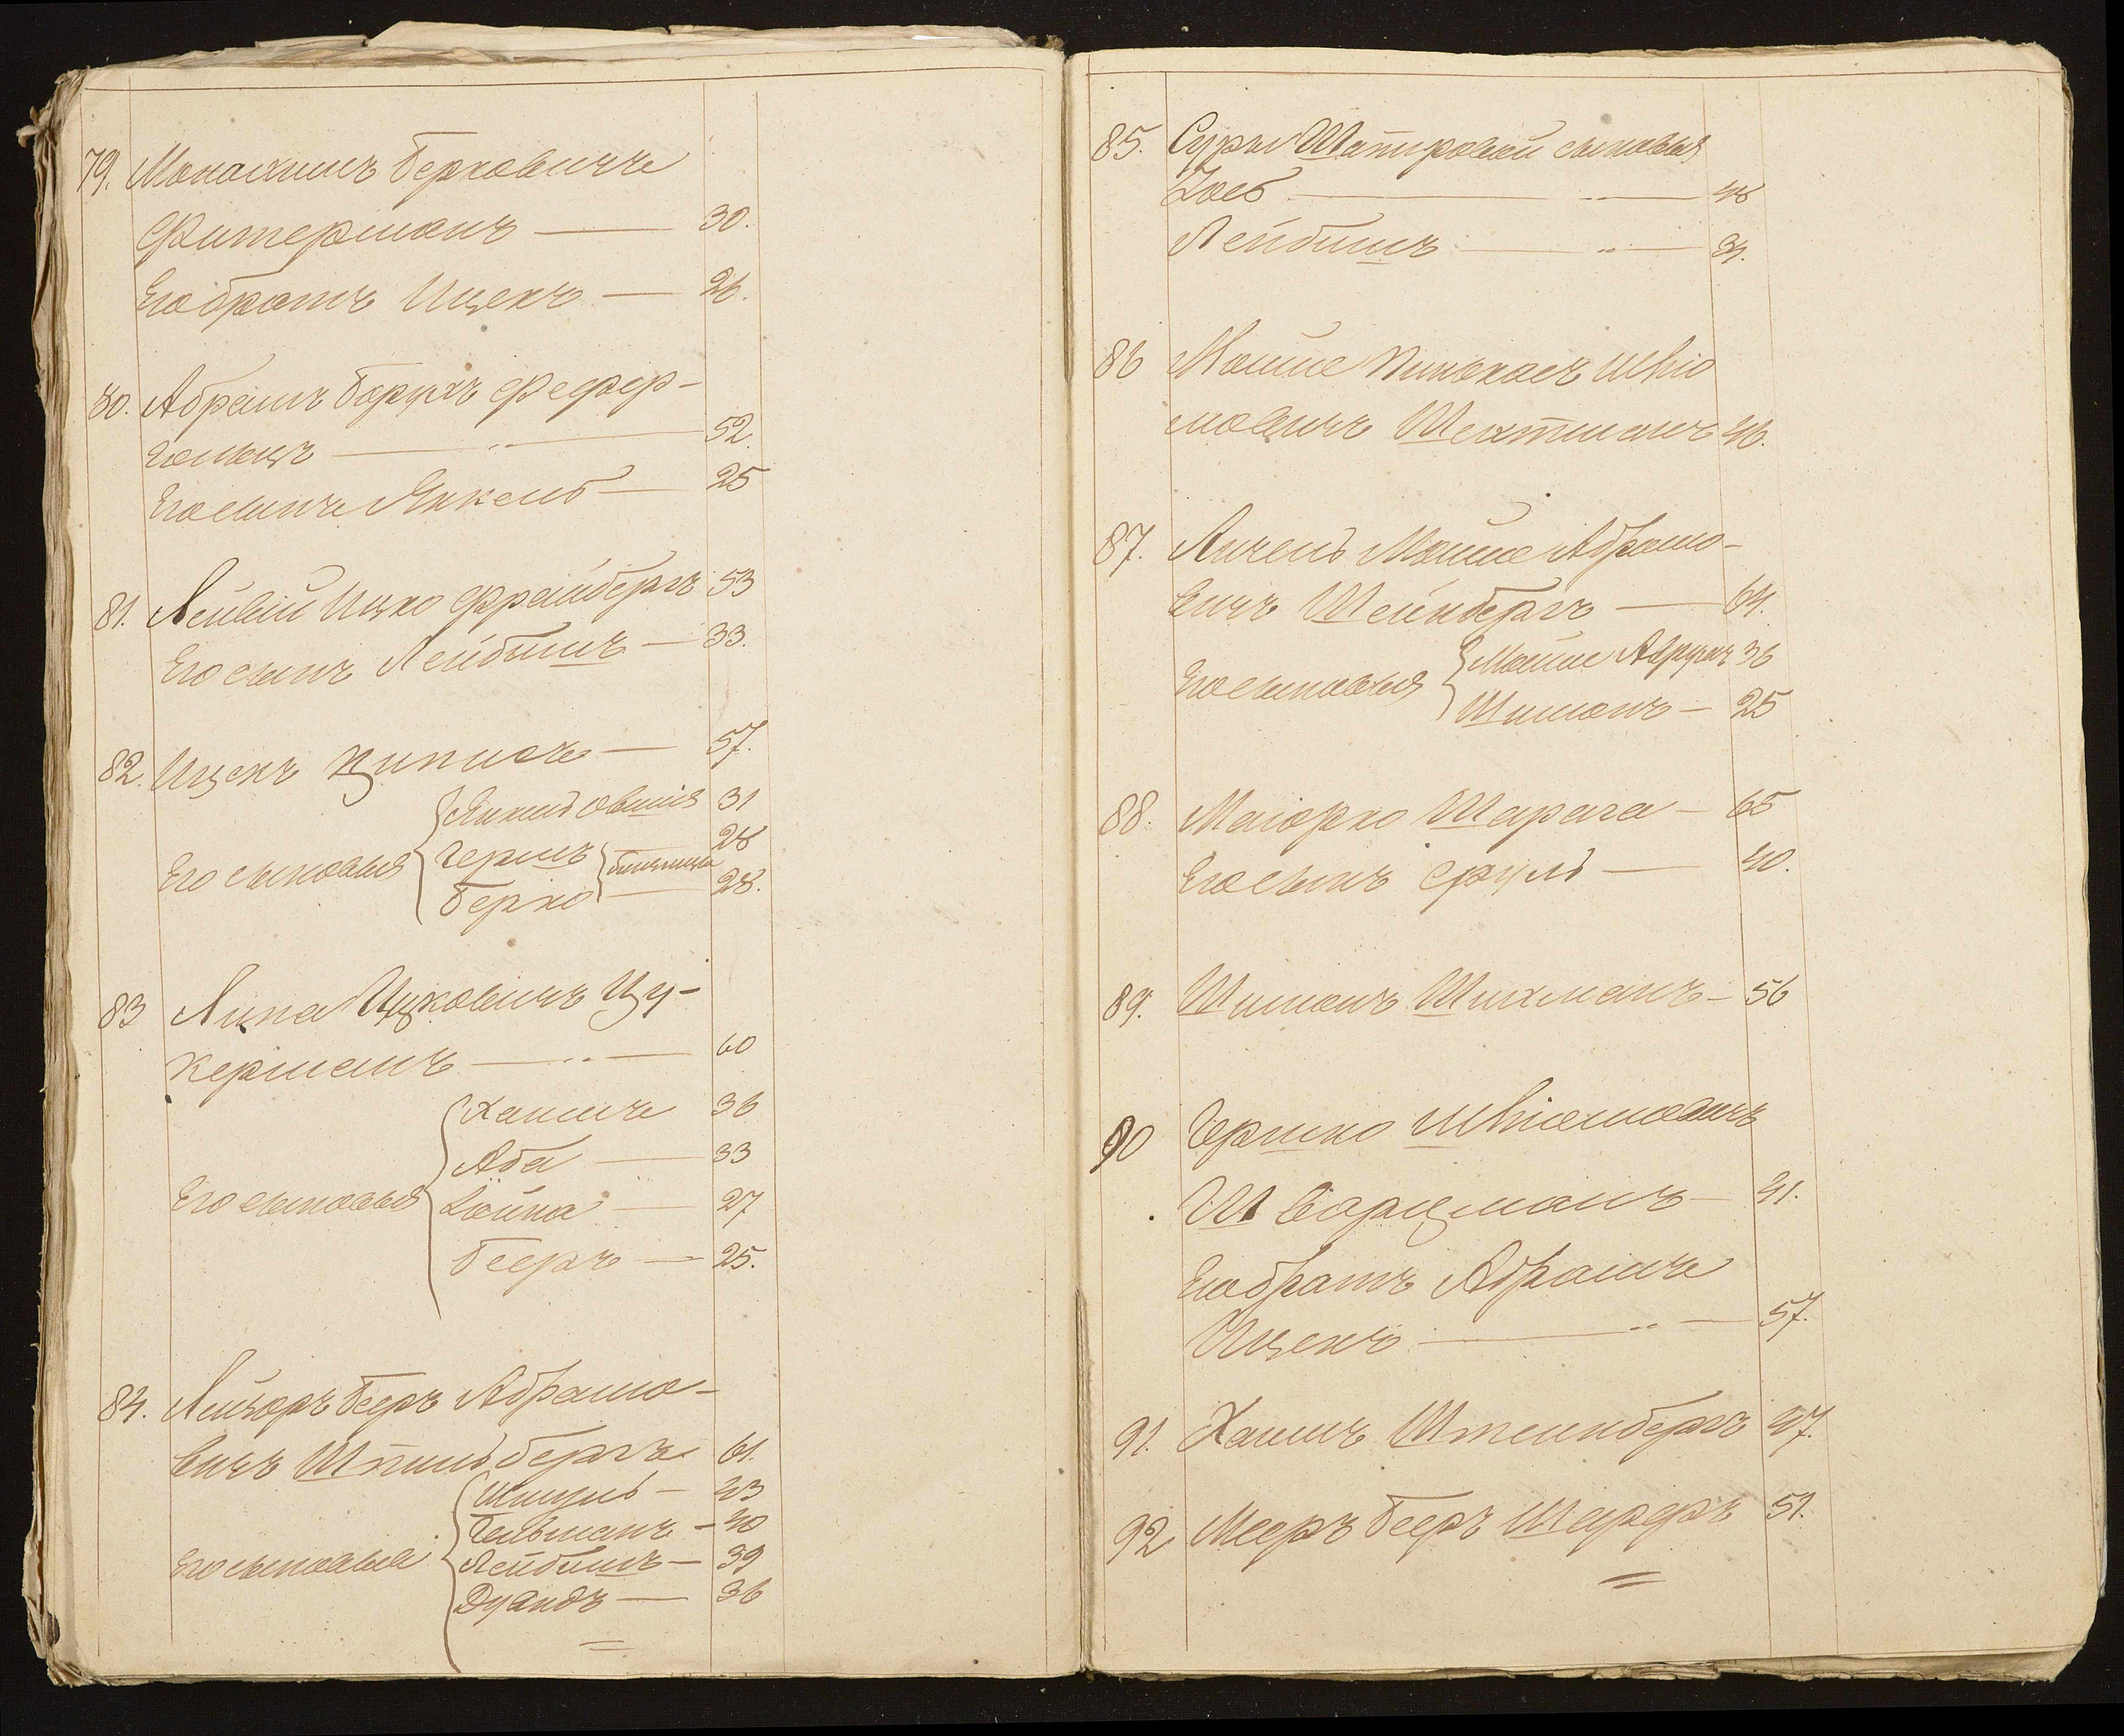 79. Монахимъ Берковичъ
Фитерманъ — 30.
Его братъ Ицекъ — 26.
80. Абрамъ Борухъ Фефер-
гольцъ — 52.
Его сынъ Янкель — 25
81. Лейвій Ицко Фрайбергъ 53
Его сынъ Лейбишъ — 33.
82. Ицекъ Ціписъ — 57.
Его сыновья
Янкель Овшія 31
Гершъ 28
Берко — 28.
близнецы
83 Липа Ицковичъ Цу-
керманъ — 60
Его сыновья
Хаимъ 36
Аба — 33
Іойна — 27
Бееръ — 25.
84. Лейзоръ Бееръ Абрамо-
вичъ Шпильбергъ 61.
Его сыновья
Шмуль — 43
Гельманъ — 40
Лейбишъ — 39
Дувидъ — 36
85. Суры Шапировой сыновья
Іось — 48
Лейбишъ — 34.
86 Мошко Пинькасъ Шліо
мовичъ Шехтманъ 46.
87. Анчель Мошко Абрамо-
вичъ Шейнбергъ — 64.
Его сыновья
Мошко 36
Шимонъ — 25
88. Маіорко Шарага — 65
Его сынъ Сруль — 40.
89. Шимонъ Шихманъ — 56
90 Гершко Шліомовичъ
Шварцманъ — 41.
Его братъ Абрамъ
Ицекъ — 57.
91. Хаимъ Штейнбергъ 47.
92 Мееръ Бееръ Шареръ 51.